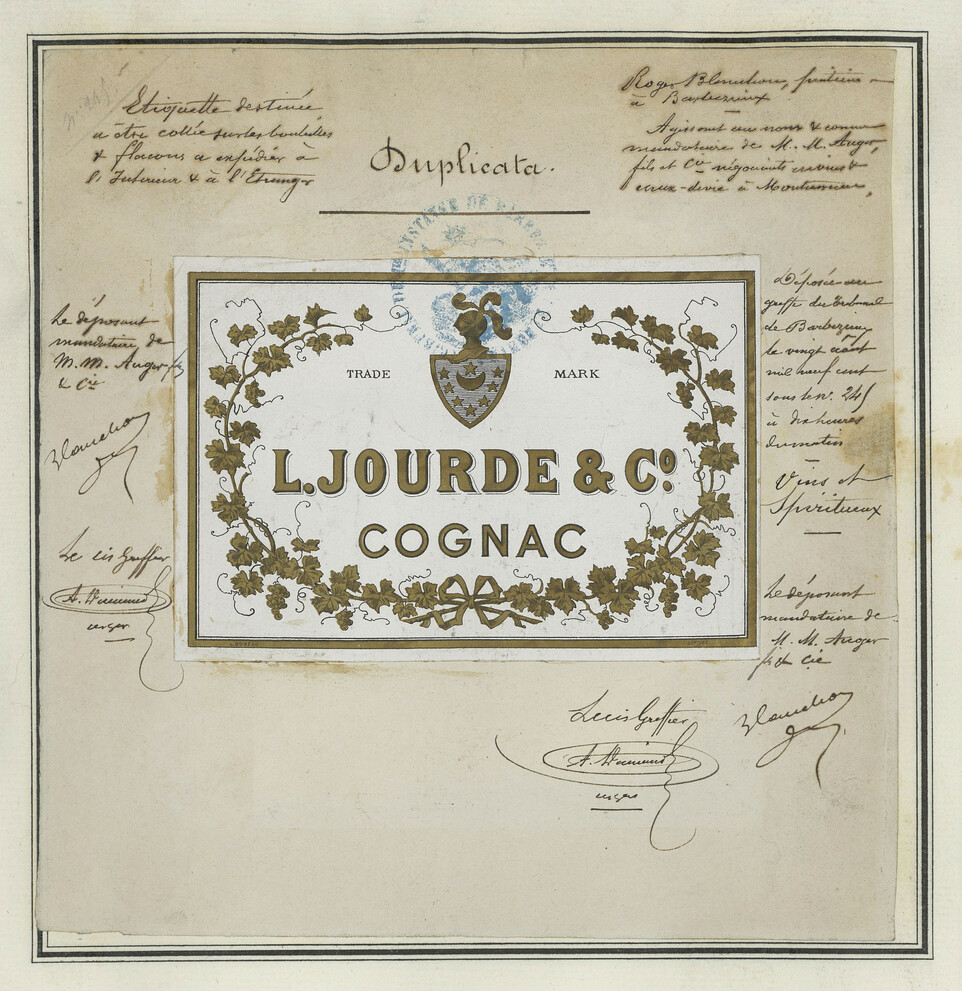 Etiquette destinée
à être collée sur les bouteilles
& flacons a expédier à
l'Intérieur & à l'Étranger
Duplicata.
Roger Blanchon,
à Barbezieux
Agissant au nom & comme
mandataire de M. M. Auger,
fils et Cie négociants en vins &
eaux-de-vie à
INSTANCE DE
Le déposant
mandataire de
M. M. Auger fs
& Cie
Blanchon
Le cis Greffier
TRADE MARK
L. JOURDE & Co.
COGNAC
Déposée au
greffe du Tribunal
de Barbezieux
le vingt août
mil neuf cent
sous le no. 245
à dix heures
du matin
Vins et
Spiritueux
Le déposant
mandataire de
M. M. Auger
fs & Cie
Blanchon
Le cis Greffier